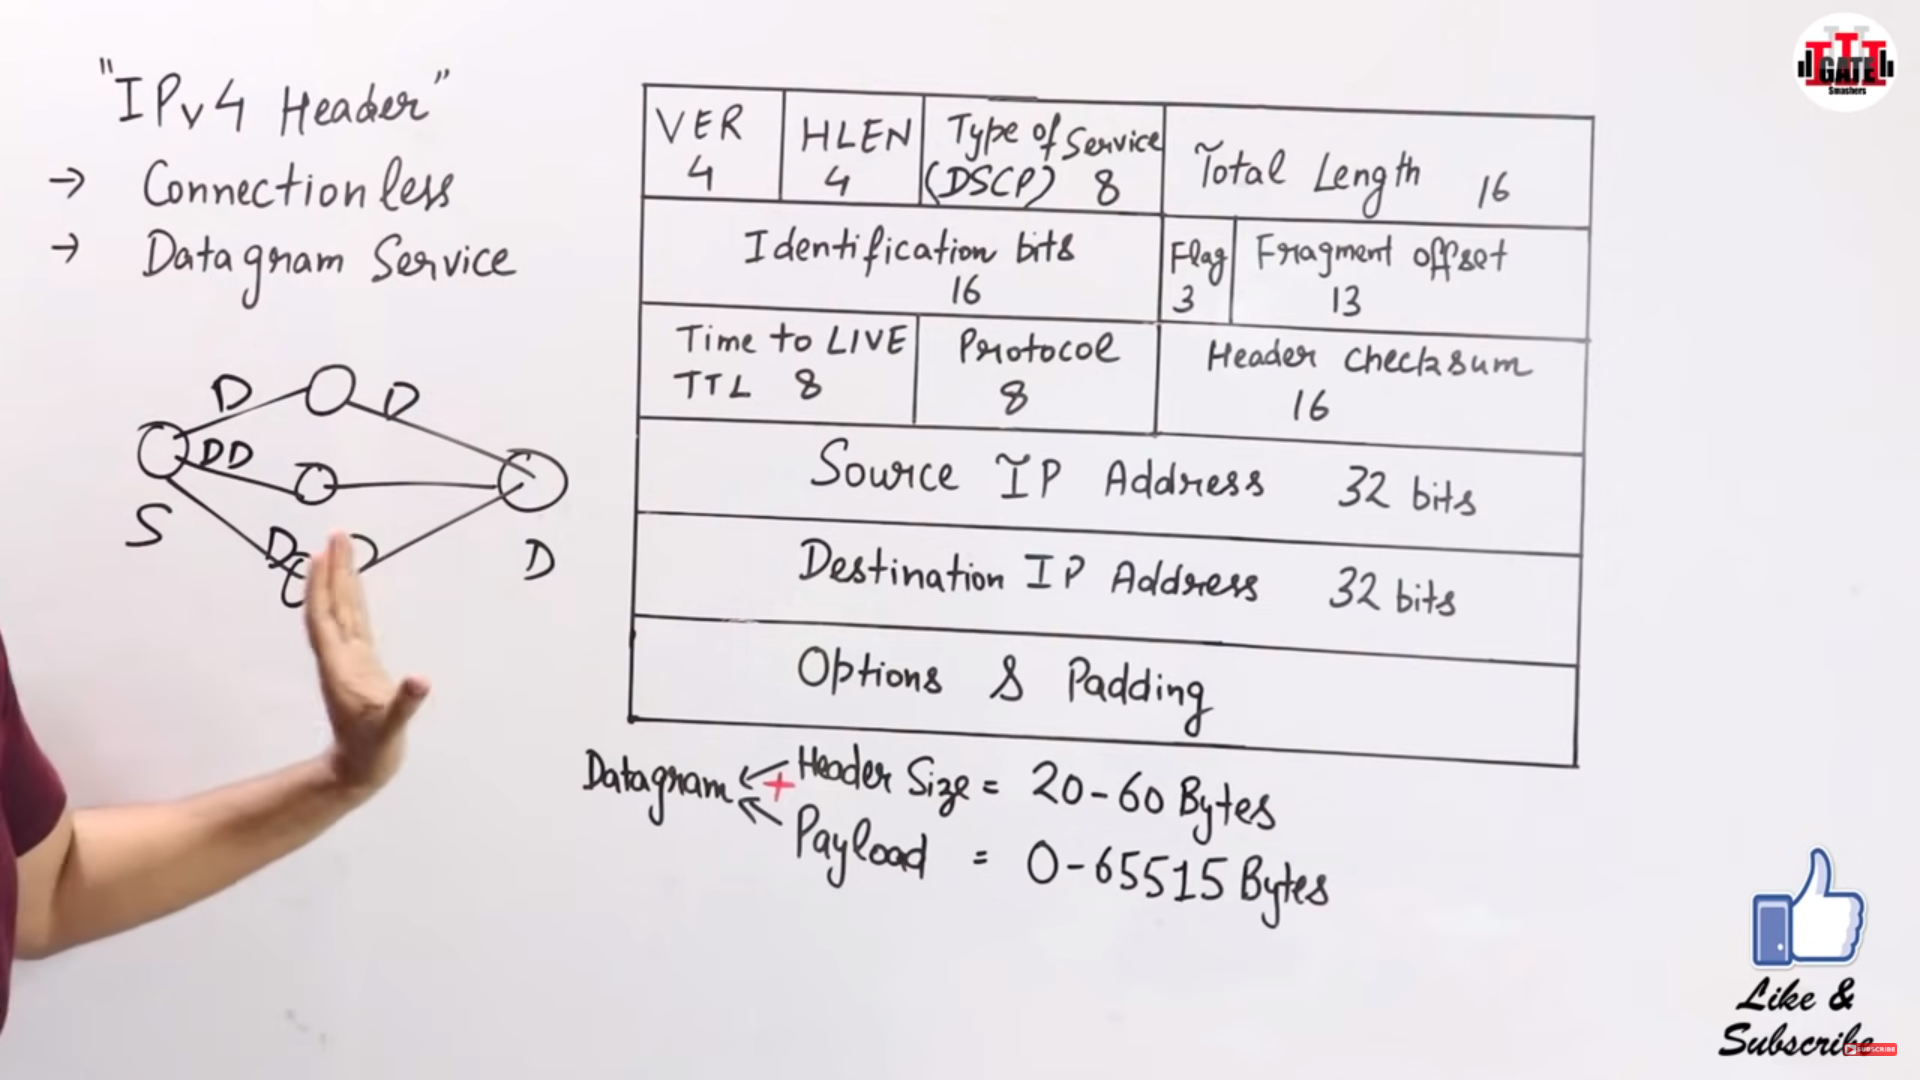 "IPv4 Header"
→ Connectionless
→ Datagram Service
D
D
DD
D
D
S
D
VER
4
HLEN
4
Type of Service
(DSCP) 8
Total Length 16
Identification bits
16
Flag
3
Fragment offset
13
Time to LIVE
TTL 8
Protocol
8
Header checksum
16
Source IP Address 32 bits
Destination IP Address 32 bits
Options & Padding
Datagram
+
Header Size = 20-60 Bytes
Payload = 0-65515 Bytes
GATE
Smashers
Like &
Subscribe
SUBSCRIBE